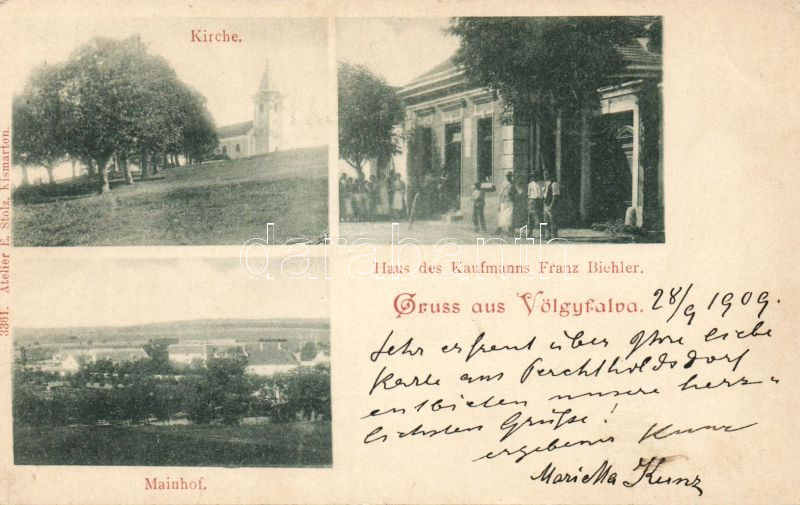 Kirche.
3361. Atelier E. Stolz, Kismarton.
Haus des Kaufmanns Franz Bichler.
Gruss aus Völgyfalva.
28/9 1909.
Sehr erfreut über Ihre liebe
Karte aus Perchtholdsdorf
entbieten unsere herz-
lichsten Grüße!
ergebenst Kunz
Marietta Kunz
Mainhof.
darabanth.com